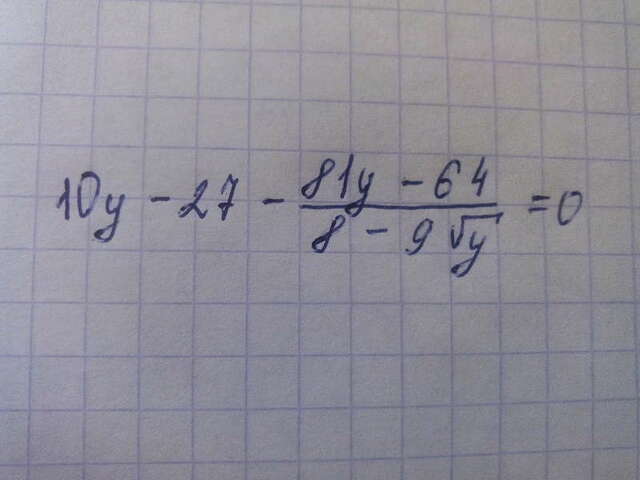 10y - 27 - (81y - 64)/(8 - 9√y) = 0